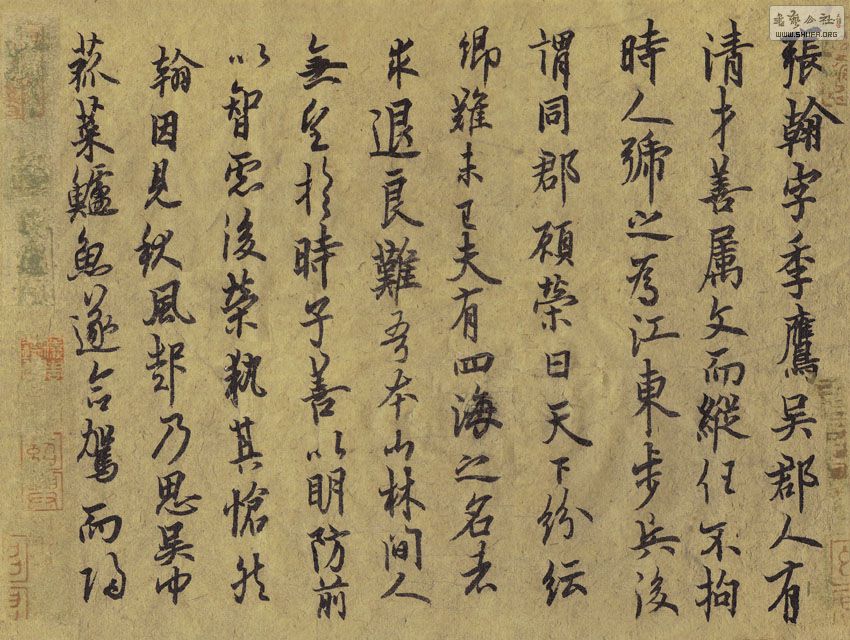 張翰字季鷹吳郡人有
清才善属文而縱任不拘
時人號之為江東步兵後
謂同郡顧榮曰天下紛紜
禍難未已夫有四海之名者
求退良難吾本山林間人
無望於時子善以明防前
以智慮後榮執其愴然
翰因見秋風起乃思吳中
菰菜鱸魚遂命駕而歸
WWW.SHUFA.ORG